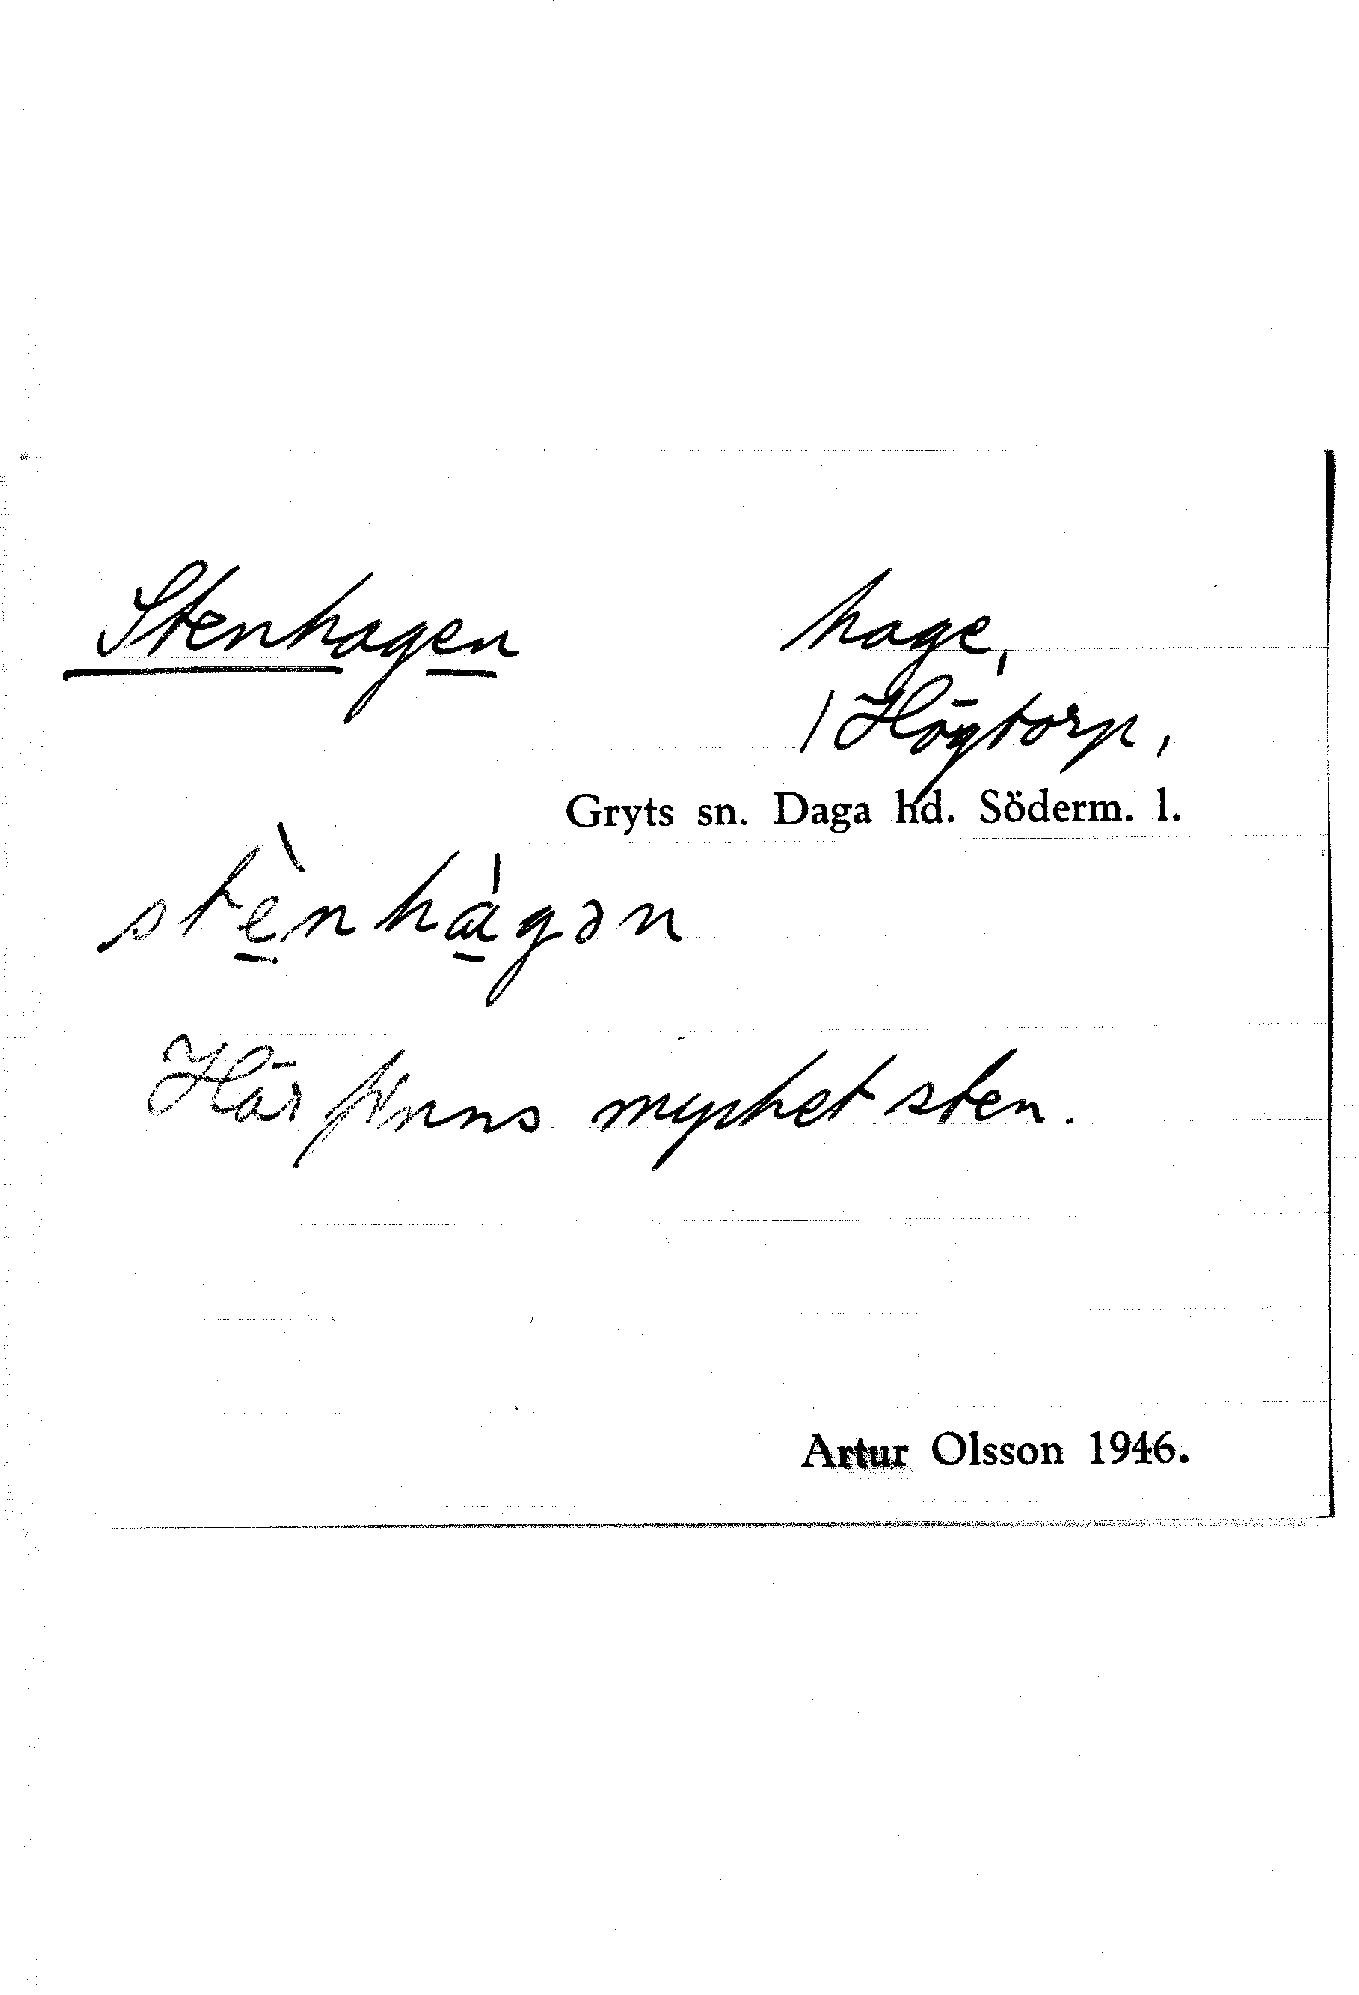 Stenhagen hage,
/ Högtorp,
Gryts sn. Daga hd. Söderm. l.
stè̱nhà̱gən
Här finns mycket sten.
Artur Olsson 1946.